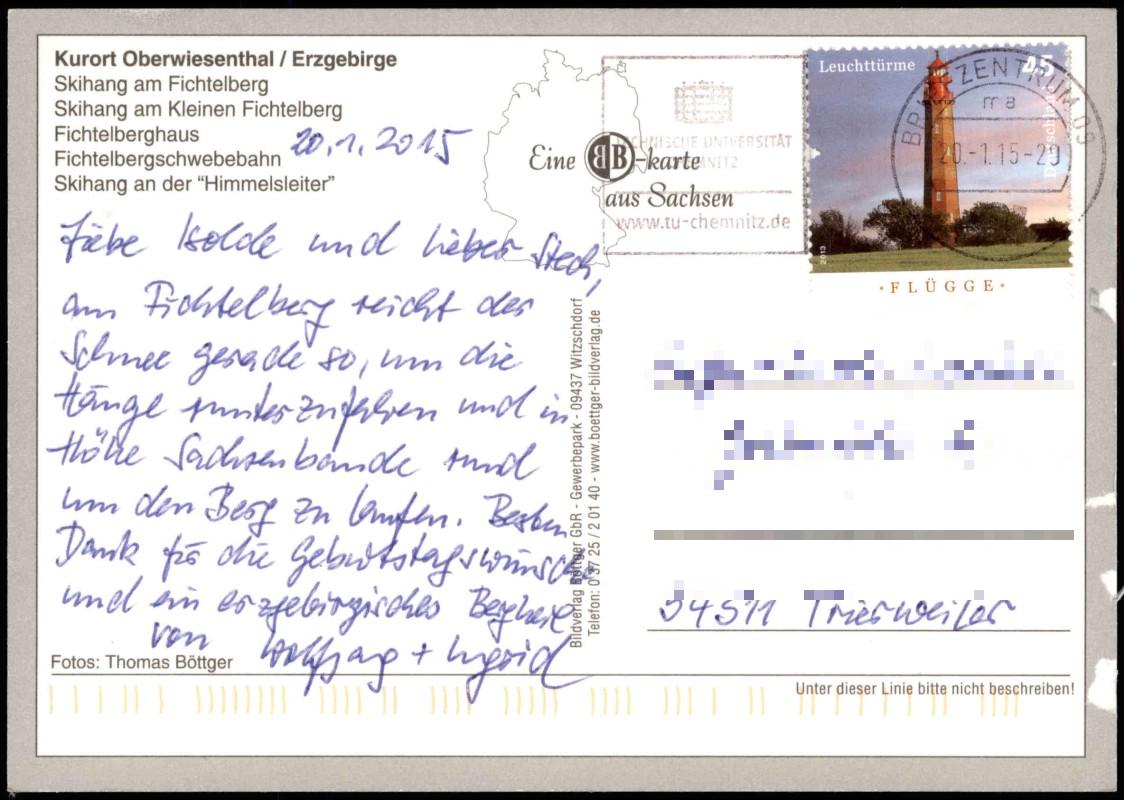 Kurort Oberwiesenthal / Erzgebirge
Skihang am Fichtelberg
Skihang am Kleinen Fichtelberg
Fichtelberghaus
Fichtelbergschwebebahn
Skihang an der “Himmelsleiter”
20.1.2015
Liebe Isolde und lieber
am Fichtelberg reicht der
Schnee gerade so, um die
Hänge runterzufahren und in
Höhe Sachsenbaude rund
um den Berg zu laufen. Besten
Dank für die Geburtstagswünsche
und ein erzgebirgisches
von Wolfgang + Ingrid
Fotos: Thomas Böttger
Eine BB-karte
aus Sachsen
TECHNISCHE UNIVERSITÄT
CHEMNITZ
www.tu-chemnitz.de
Bildverlag Böttger GbR - Gewerbepark - 09437 Witzschdorf
Telefon: 0 37 25 / 2 01 40 - www.boettger-bildverlag.de
Leuchttürme
45
Deutschland
2013
·FLÜGGE·
BRIEFZENTRUM 09
ma
20.-1.15-20
54311 Trierweiler
Unter dieser Linie bitte nicht beschreiben!